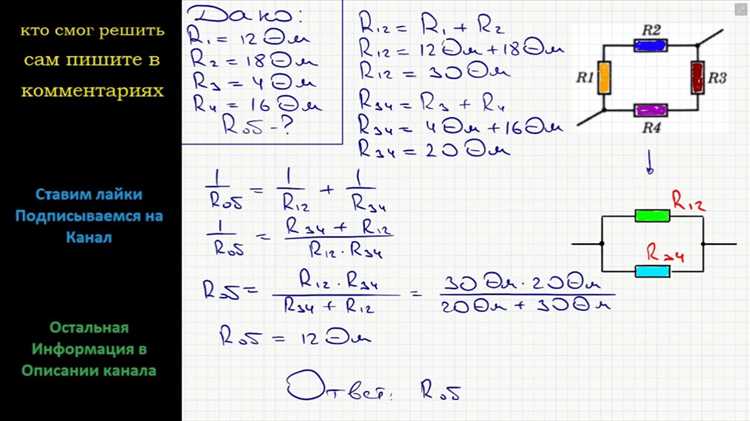 кто смог решить
сам пишите в
комментариях
Ставим лайки
Подписываемся на
Канал
Остальная
Информация в
Описании канала
Дако:
R₁ = 12 Ом
R₂ = 18 Ом
R₃ = 4 Ом
R₄ = 16 Ом
Rоб - ?
R₁₂ = R₁ + R₂
R₁₂ = 12 Ом + 18 Ом
R₁₂ = 30 Ом
R₃₄ = R₃ + R₄
R₃₄ = 4 Ом + 16 Ом
R₃₄ = 20 Ом
R2
R1
R3
R4
R₁₂
R₃₄
1/Rоб = 1/R₁₂ + 1/R₃₄
1/Rоб = (R₃₄ + R₁₂)/(R₁₂ · R₃₄)
Rоб = (R₁₂ · R₃₄)/(R₃₄ + R₁₂) = (30 Ом · 20 Ом)/(20 Ом + 30 Ом)
Rоб = 12 Ом
Ответ: Rоб